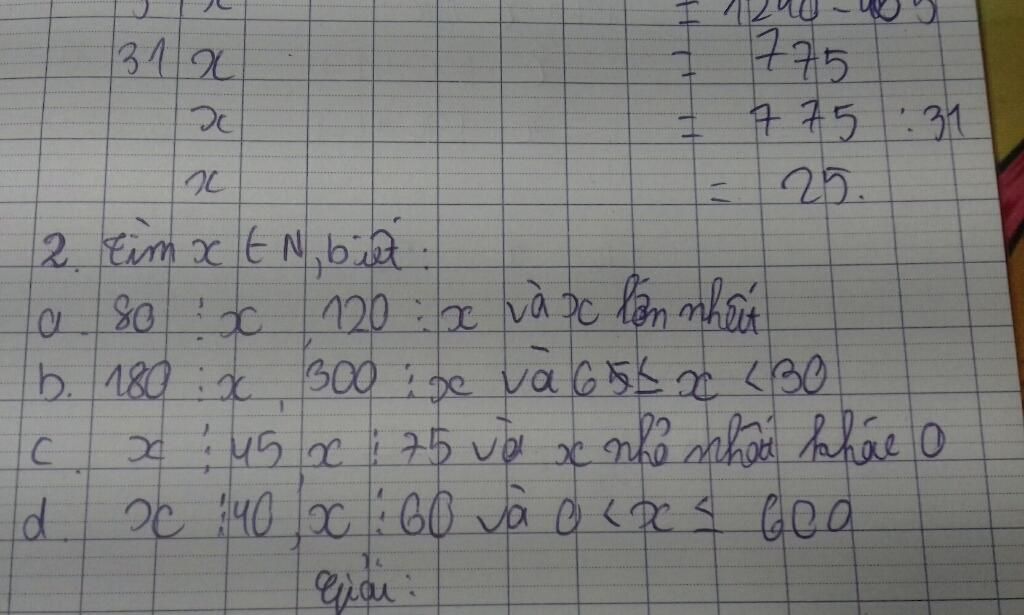 x = 1240 - 465
31 x = 775
x = 775 : 31
x = 25.
2. tìm x ∈ N, biết:
a. 80 ⋮ x 120 ⋮ x và x lớn nhất
b. 180 ⋮ x, 300 ⋮ x và 65 ≤ x < 30
c. x ⋮ 45, x ⋮ 75 và x nhỏ nhất khác 0
d. x ⋮ 40, x ⋮ 60 và 0 < x ≤ 600
Giải: